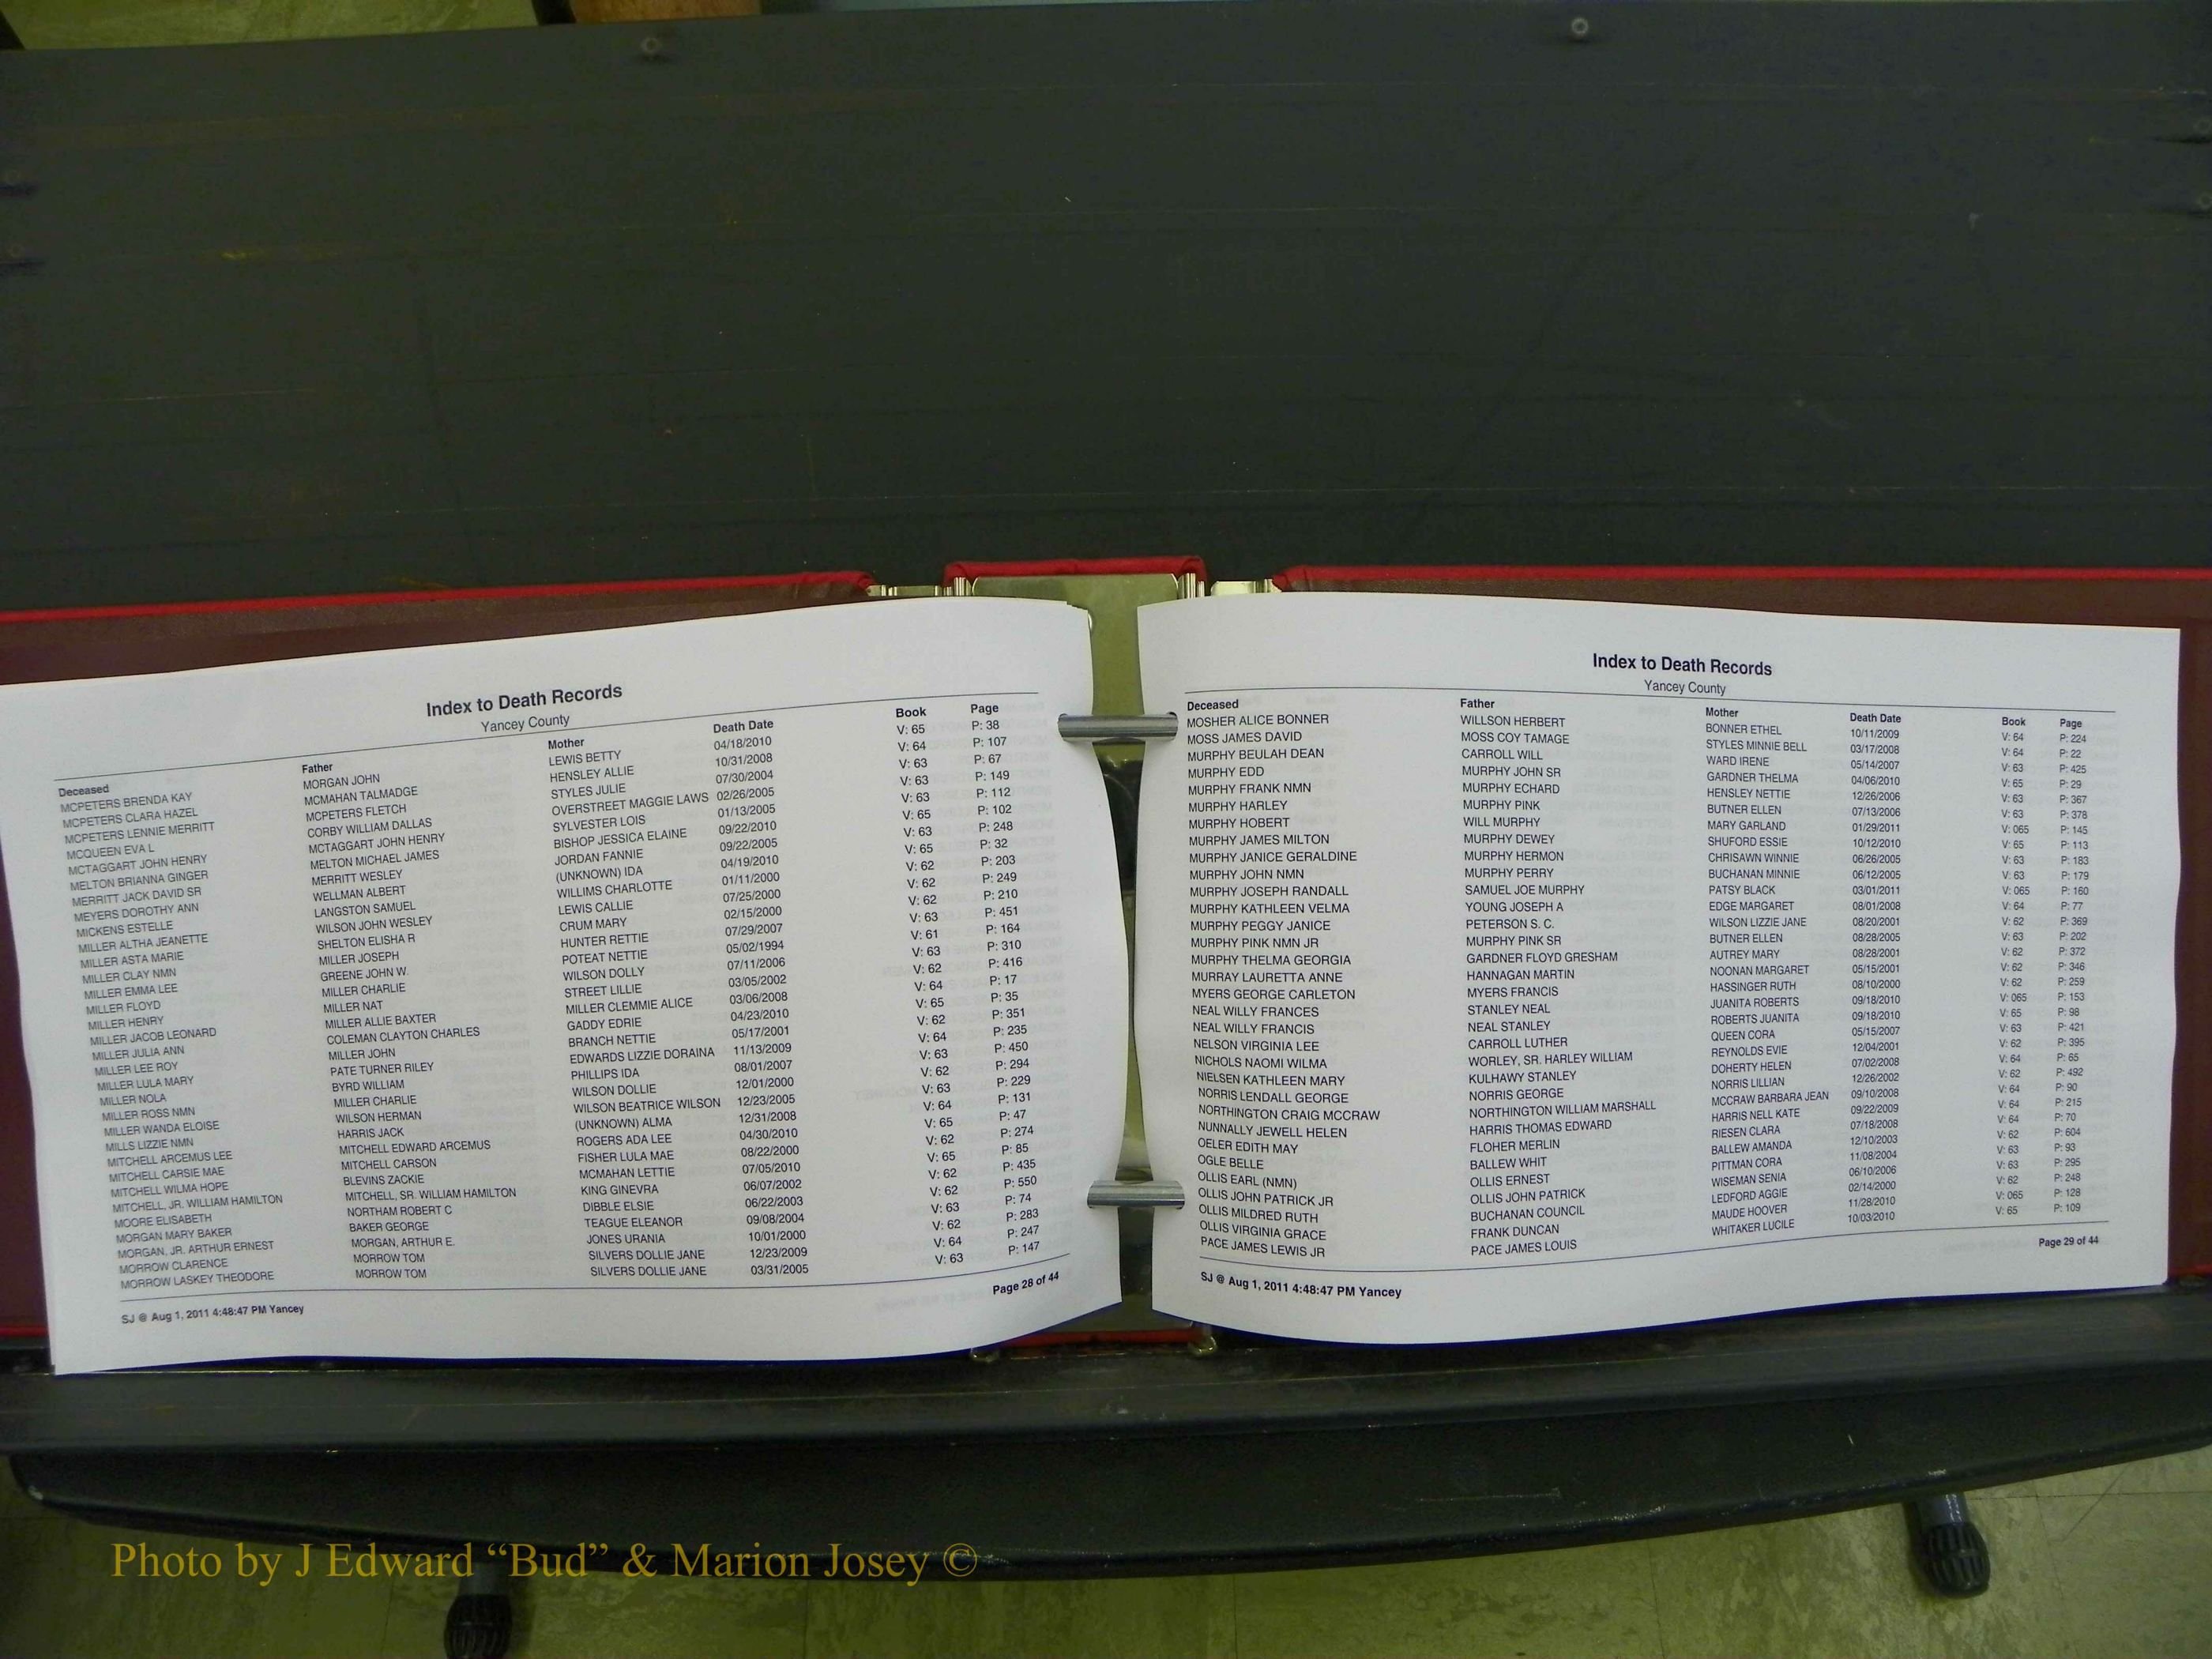 Index to Death Records
Yancey County
Deceased Father Mother Death Date Book Page
MCPETERS BRENDA KAY MORGAN JOHN LEWIS BETTY 04/18/2010 V: 65 P: 38
MCPETERS CLARA HAZEL MCMAHAN TALMADGE HENSLEY ALLIE 10/31/2008 V: 64 P: 107
MCPETERS LENNIE MERRITT MCPETERS FLETCH STYLES JULIE 07/30/2004 V: 63 P: 67
MCQUEEN EVA L CORBY WILLIAM DALLAS OVERSTREET MAGGIE LAWS 02/26/2005 V: 63 P: 149
MCTAGGART JOHN HENRY MCTAGGART JOHN HENRY SYLVESTER LOIS 01/13/2005 V: 63 P: 112
MELTON BRIANNA GINGER MELTON MICHAEL JAMES BISHOP JESSICA ELAINE 09/22/2010 V: 65 P: 102
MERRITT JACK DAVID SR MERRITT WESLEY JORDAN FANNIE 09/22/2005 V: 63 P: 248
MEYERS DOROTHY ANN WELLMAN ALBERT (UNKNOWN) IDA 04/19/2010 V: 65 P: 32
MICKENS ESTELLE LANGSTON SAMUEL WILLIMS CHARLOTTE 01/11/2000 V: 62 P: 203
MILLER ALTHA JEANETTE WILSON JOHN WESLEY LEWIS CALLIE 07/25/2000 V: 62 P: 249
MILLER ASTA MARIE SHELTON ELISHA R CRUM MARY 02/15/2000 V: 62 P: 210
MILLER CLAY NMN MILLER JOSEPH HUNTER RETTIE 07/29/2007 V: 63 P: 451
MILLER EMMA LEE GREENE JOHN W. POTEAT NETTIE 05/02/1994 V: 61 P: 164
MILLER FLOYD MILLER CHARLIE WILSON DOLLY 07/11/2006 V: 63 P: 310
MILLER HENRY MILLER NAT STREET LILLIE 03/05/2002 V: 62 P: 416
MILLER JACOB LEONARD MILLER ALLIE BAXTER MILLER CLEMMIE ALICE 03/06/2008 V: 64 P: 17
MILLER JULIA ANN COLEMAN CLAYTON CHARLES GADDY EDRIE 04/23/2010 V: 65 P: 35
MILLER LEE ROY MILLER JOHN BRANCH NETTIE 05/17/2001 V: 62 P: 351
MILLER LULA MARY PATE TURNER RILEY EDWARDS LIZZIE DORAINA 11/13/2009 V: 64 P: 235
MILLER NOLA BYRD WILLIAM PHILLIPS IDA 08/01/2007 V: 63 P: 450
MILLER ROSS NMN MILLER CHARLIE WILSON DOLLIE 12/01/2000 V: 62 P: 294
MILLER WANDA ELOISE WILSON HERMAN WILSON BEATRICE WILSON 12/23/2005 V: 63 P: 229
MILLS LIZZIE NMN HARRIS JACK (UNKNOWN) ALMA 12/31/2008 V: 64 P: 131
MITCHELL ARCEMUS LEE MITCHELL EDWARD ARCEMUS ROGERS ADA LEE 04/30/2010 V: 65 P: 47
MITCHELL CARSIE MAE MITCHELL CARSON FISHER LULA MAE 08/22/2000 V: 62 P: 274
MITCHELL WILMA HOPE BLEVINS ZACKIE MCMAHAN LETTIE 07/05/2010 V: 65 P: 85
MITCHELL, JR. WILLIAM HAMILTON MITCHELL, SR. WILLIAM HAMILTON KING GINEVRA 06/07/2002 V: 62 P: 435
MOORE ELISABETH NORTHAM ROBERT C DIBBLE ELSIE 06/22/2003 V: 62 P: 550
MORGAN MARY BAKER BAKER GEORGE TEAGUE ELEANOR 09/08/2004 V: 63 P: 74
MORGAN, JR. ARTHUR ERNEST MORGAN, ARTHUR E. JONES URANIA 10/01/2000 V: 62 P: 283
MORROW CLARENCE MORROW TOM SILVERS DOLLIE JANE 12/23/2009 V: 64 P: 247
MORROW LASKEY THEODORE MORROW TOM SILVERS DOLLIE JANE 03/31/2005 V: 63 P: 147
SJ @ Aug 1, 2011 4:48:47 PM Yancey Page 28 of 44
Index to Death Records
Yancey County
Deceased Father Mother Death Date Book Page
MOSHER ALICE BONNER WILLSON HERBERT BONNER ETHEL 10/11/2009 V: 64 P: 224
MOSS JAMES DAVID MOSS COY TAMAGE STYLES MINNIE BELL 03/17/2008 V: 64 P: 22
MURPHY BEULAH DEAN CARROLL WILL WARD IRENE 05/14/2007 V: 63 P: 425
MURPHY EDD MURPHY JOHN SR GARDNER THELMA 04/06/2010 V: 65 P: 29
MURPHY FRANK NMN MURPHY ECHARD HENSLEY NETTIE 12/26/2006 V: 63 P: 367
MURPHY HARLEY MURPHY PINK BUTNER ELLEN 07/13/2006 V: 63 P: 378
MURPHY HOBERT WILL MURPHY MARY GARLAND 01/29/2011 V: 065 P: 145
MURPHY JAMES MILTON MURPHY DEWEY SHUFORD ESSIE 10/12/2010 V: 65 P: 113
MURPHY JANICE GERALDINE MURPHY HERMON CHRISAWN WINNIE 06/26/2005 V: 63 P: 183
MURPHY JOHN NMN MURPHY PERRY BUCHANAN MINNIE 06/12/2005 V: 63 P: 179
MURPHY JOSEPH RANDALL SAMUEL JOE MURPHY PATSY BLACK 03/01/2011 V: 065 P: 160
MURPHY KATHLEEN VELMA YOUNG JOSEPH A EDGE MARGARET 08/01/2008 V: 64 P: 77
MURPHY PEGGY JANICE PETERSON S. C. WILSON LIZZIE JANE 08/20/2001 V: 62 P: 369
MURPHY PINK NMN JR MURPHY PINK SR BUTNER ELLEN 08/28/2005 V: 63 P: 202
MURPHY THELMA GEORGIA GARDNER FLOYD GRESHAM AUTREY MARY 08/28/2001 V: 62 P: 372
MURRAY LAURETTA ANNE HANNAGAN MARTIN NOONAN MARGARET 05/15/2001 V: 62 P: 346
MYERS GEORGE CARLETON MYERS FRANCIS HASSINGER RUTH 08/10/2000 V: 62 P: 259
NEAL WILLY FRANCES STANLEY NEAL JUANITA ROBERTS 09/18/2010 V: 065 P: 153
NEAL WILLY FRANCIS NEAL STANLEY ROBERTS JUANITA 09/18/2010 V: 65 P: 98
NELSON VIRGINIA LEE CARROLL LUTHER QUEEN CORA 05/15/2007 V: 63 P: 421
NICHOLS NAOMI WILMA WORLEY, SR. HARLEY WILLIAM REYNOLDS EVIE 12/04/2001 V: 62 P: 395
NIELSEN KATHLEEN MARY KULHAWY STANLEY DOHERTY HELEN 07/02/2008 V: 64 P: 65
NORRIS LENDALL GEORGE NORRIS GEORGE NORRIS LILLIAN 12/26/2002 V: 62 P: 492
NORTHINGTON CRAIG MCCRAW NORTHINGTON WILLIAM MARSHALL MCCRAW BARBARA JEAN 09/10/2008 V: 64 P: 90
NUNNALLY JEWELL HELEN HARRIS THOMAS EDWARD HARRIS NELL KATE 09/22/2009 V: 64 P: 215
OELER EDITH MAY FLOHER MERLIN RIESEN CLARA 07/18/2008 V: 64 P: 70
OGLE BELLE BALLEW WHIT BALLEW AMANDA 12/10/2003 V: 62 P: 604
OLLIS EARL (NMN) OLLIS ERNEST PITTMAN CORA 11/08/2004 V: 63 P: 93
OLLIS JOHN PATRICK JR OLLIS JOHN PATRICK WISEMAN SENIA 06/10/2006 V: 63 P: 295
OLLIS MILDRED RUTH BUCHANAN COUNCIL LEDFORD AGGIE 02/14/2000 V: 62 P: 248
OLLIS VIRGINIA GRACE FRANK DUNCAN MAUDE HOOVER 11/28/2010 V: 065 P: 128
PACE JAMES LEWIS JR PACE JAMES LOUIS WHITAKER LUCILE 10/03/2010 V: 65 P: 109
SJ @ Aug 1, 2011 4:48:47 PM Yancey Page 29 of 44
Photo by J Edward “Bud” & Marion Josey ©